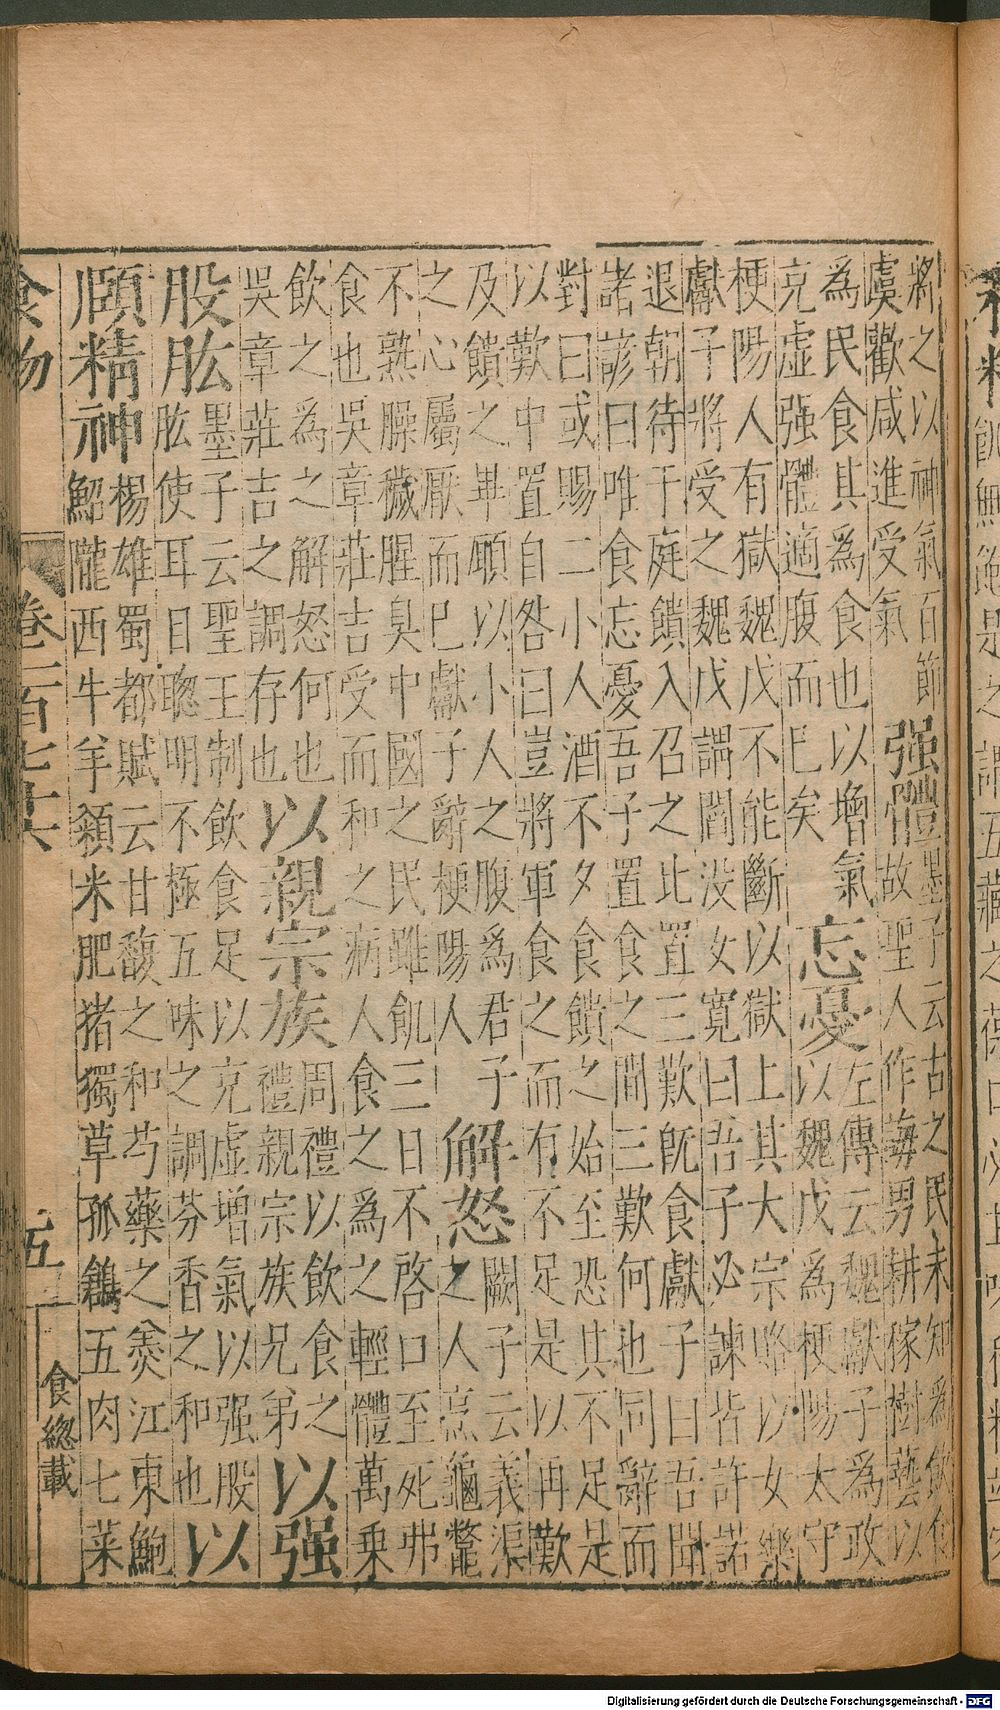 將之以神氣百節虞歡咸進受氣强體墨子云古之民未知為飲食故聖人作誨男耕稼樹藝以
為民食其為食也以增氣克虚强體適腹而巳矣忘憂左傳云魏獻子為政以魏戊為梗陽太守
梗陽人有獄魏戊不能斷以獄上其大宗賂以女樂
獻子將受之魏戊謂閻没女寛曰吾子必諫皆許諾
退朝待于庭饋入召之比置三歎旣食獻子曰吾聞
諸諺曰唯食忘憂吾子置食之間三歎何也同辭而
對曰或賜二小人酒不夕食饋之始至恐其不足是
以歎中置自咎曰豈將軍食之而有不足是以再歎
及饋之畢願以小人之腹為君子之心屬厭而巳獻子辭梗陽人解怒闕子云義渠之人烹龜鼈
不熟臊穢腥臭中國之民雖飢三日不啓口至死弗
食也吳章莊吉受而和之病人食之為之輕體萬乗
飲之為之解怒何也吳章莊吉之調存也以親宗族周禮以飲食之禮親宗族兄弟以强
股肱墨子云聖王制飲食足以克虚增氣以强股肱使耳目聰明不極五味之調芬香之和也以
頤精神楊雄蜀都賦云甘馥之和芍藥之羮江東鮑鮂隴西牛羊糓米肥猪獨草孤鶴五肉七菜
食物 卷一百七十六 五 食總載
Digitalisierung gefördert durch die Deutsche Forschungsgemeinschaft - DFG